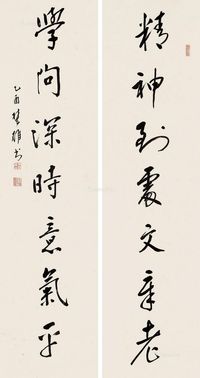 精神到處文章老
學問深時意氣平
乙酉 楚雄書